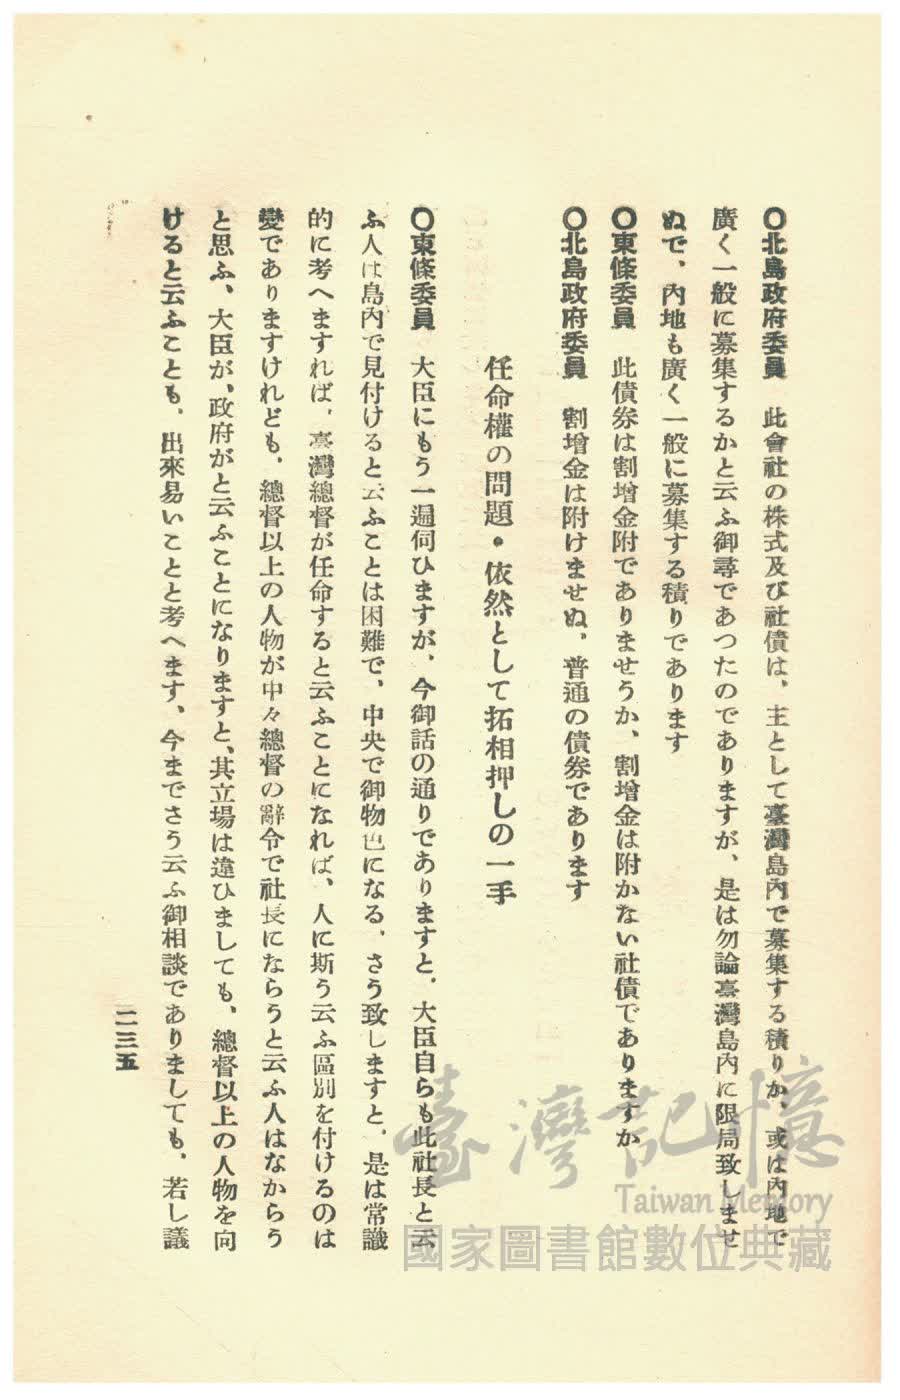 〇北島政府委員　此會社の株式及び社債は、主として臺灣島內で募集する積りか、或は內地で
廣く一般に募集するかと云ふ御尋であつたのでありますが、是は勿論臺灣島內に限局致しませ
ぬで、內地も廣く一般に募集する積りであります
〇東條委員　此債券は割增金附でありませうか、割增金は附かない社債でありますか
〇北島政府委員　割增金は附けませぬ、普通の債券であります
任命權の問題・依然として拓相押しの一手
〇東條委員　大臣にもう一遍伺ひますが、今御話の通りでありますと、大臣自らも此社長と云
ふ人は島內で見付けると云ふことは困難で、中央で御物色になる、さう致しますと、是は常識
的に考へますれば、臺灣總督が任命すると云ふことになれば、人に斯う云ふ區別を付けるのは
變でありますけれども、總督以上の人物が中々總督の辭令で社長にならうと云ふ人はなからう
と思ふ、大臣が、政府がと云ふことになりますと、其立場は違ひましても、總督以上の人物を向
けると云ふことも、出來易いことと考へます、今までさう云ふ御相談でありましても、若し議
二三五
臺灣記憶
Taiwan Memory
國家圖書館數位典藏